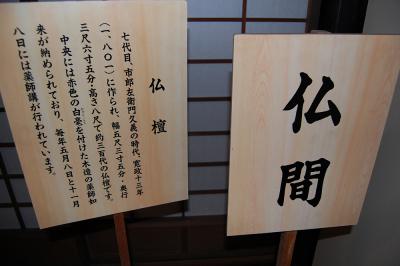 仏壇
七代目、市郎左衛門久義の時代、寛政十三年
(一、八〇一)に作られ、幅五尺三寸五分・奥行
三尺六寸五分・高さ八尺で約三百代の仏壇です。
中央には赤色の白毫を付けた木造の薬師如
来が納められており、毎年五月八日と十一月
八日には薬師講が行われています。
仏間